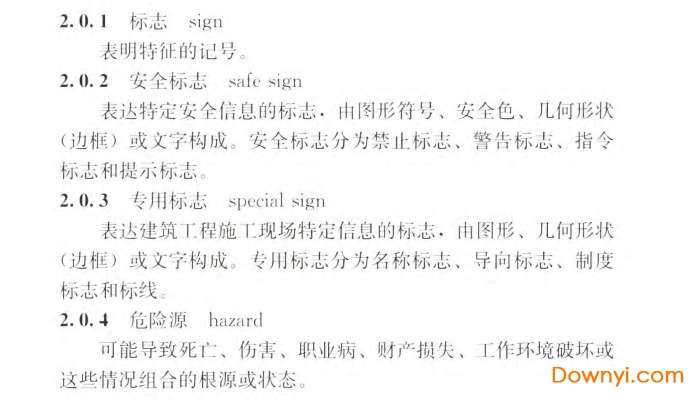 2.0.1 标志 sign
表明特征的记号。
2.0.2 安全标志 safe sign
表达特定安全信息的标志，由图形符号、安全色、几何形状
（边框）或文字构成。安全标志分为禁止标志、警告标志、指令
标志和提示标志。
2.0.3 专用标志 special sign
表达建筑工程施工现场特定信息的标志，由图形、几何形状
（边框）或文字构成。专用标志分为名称标志、导向标志、制度
标志和标线。
2.0.4 危险源 hazard
可能导致死亡、伤害、职业病、财产损失、工作环境破坏或
这些情况组合的根源或状态。
当易网
Downyi.com